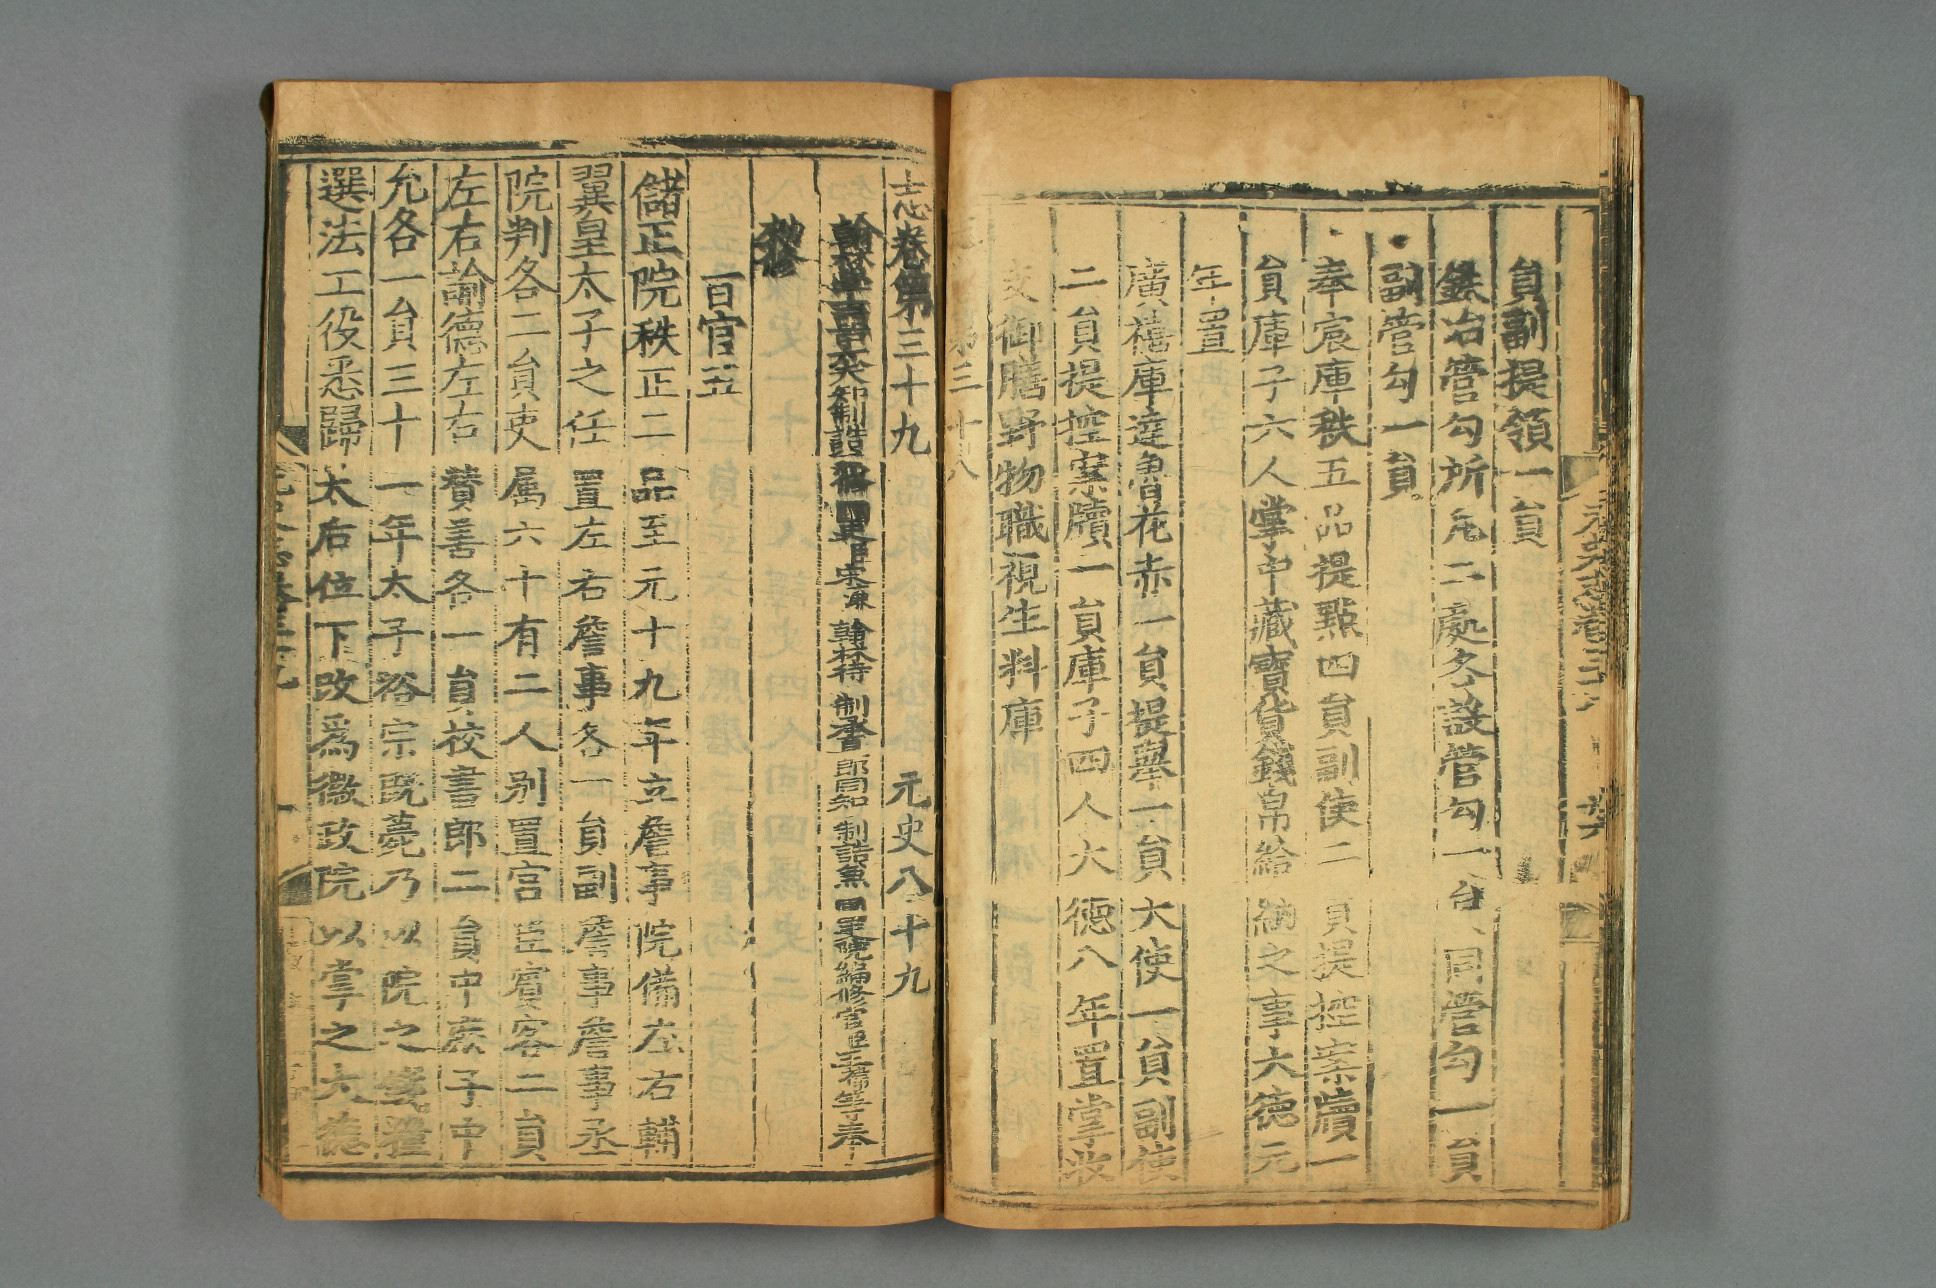 員副提領一員
鉄冶管勾所凡二處各設管勾一員同管勾一員
副管勾一員
奉宸庫秩五品提點四員副使二員提控案牘一
員庫子六人掌中藏寶貨錢帛給納之事大德元
年置
廣禧庫達魯花赤一員提舉一員大使一員副使
二員提控案牘一員庫子四人大德八年置掌收
支御膳野物職視生料庫
志卷第三十八
志卷第三十九 元史八十九
翰林學士亞中大夫知制誥兼修國史臣宋濂 翰林待制承直郎同知制誥兼國史院編修官臣王禕等奉
勑修
百官五
儲正院秩正二品至元十九年立詹事院備左右輔
翼皇太子之任置左右詹事各一員副詹事詹事丞
院判各二員吏属六十有二人别置宫臣賓客二員
左右諭德左右贊善各一員校書郎二員中庶子中
允各一員三十一年太子裕宗既薨乃以院之錢粮
選法工役悉歸太后位下改爲徽政院以掌之大德